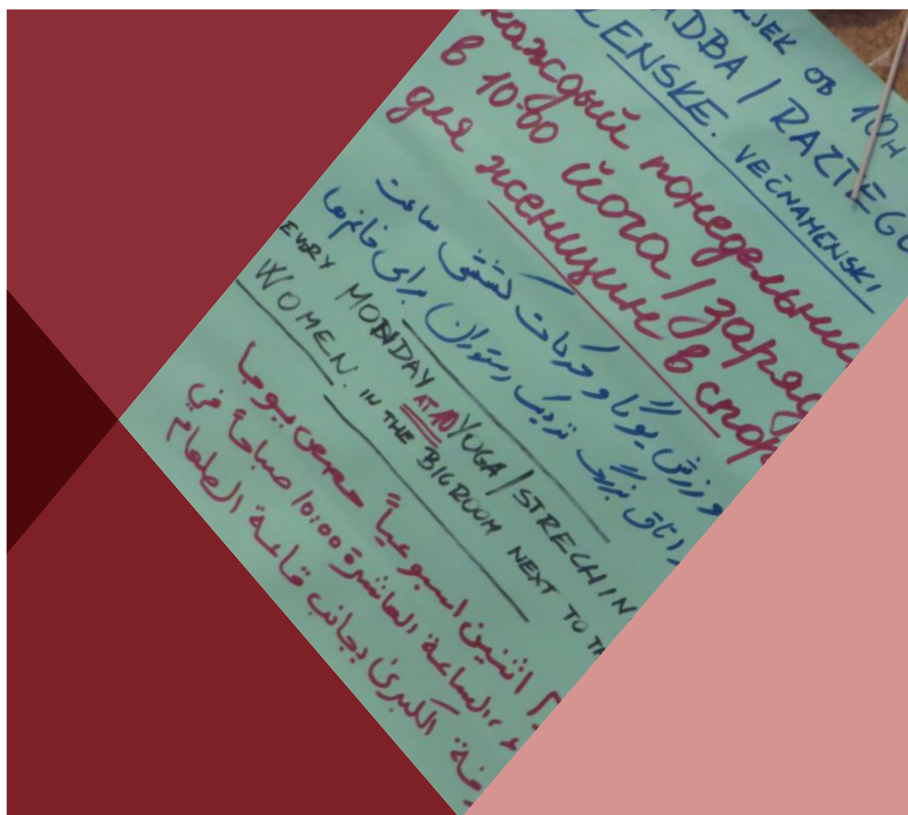 OB 10H
VADBA / RAZTEGO
ŽENSKE. VEČNAMENSKI
каждый понедельник
в 10-00 йога / заряд
для женщине в спор
ورزش یوگا و حرکات کششی ساعت
اتاق بزرگ نزدیک رستوران برای خانم‌ها
EVERY MONDAY AT 10 YOGA / STRECHIN
WOMEN. IN THE BIG ROOM NEXT TO TH
اثنين اسبوعياً حصص يوجا
الساعة العاشرة 10:00 صباحاً في
الكبرى بجانب قاعة الطعام